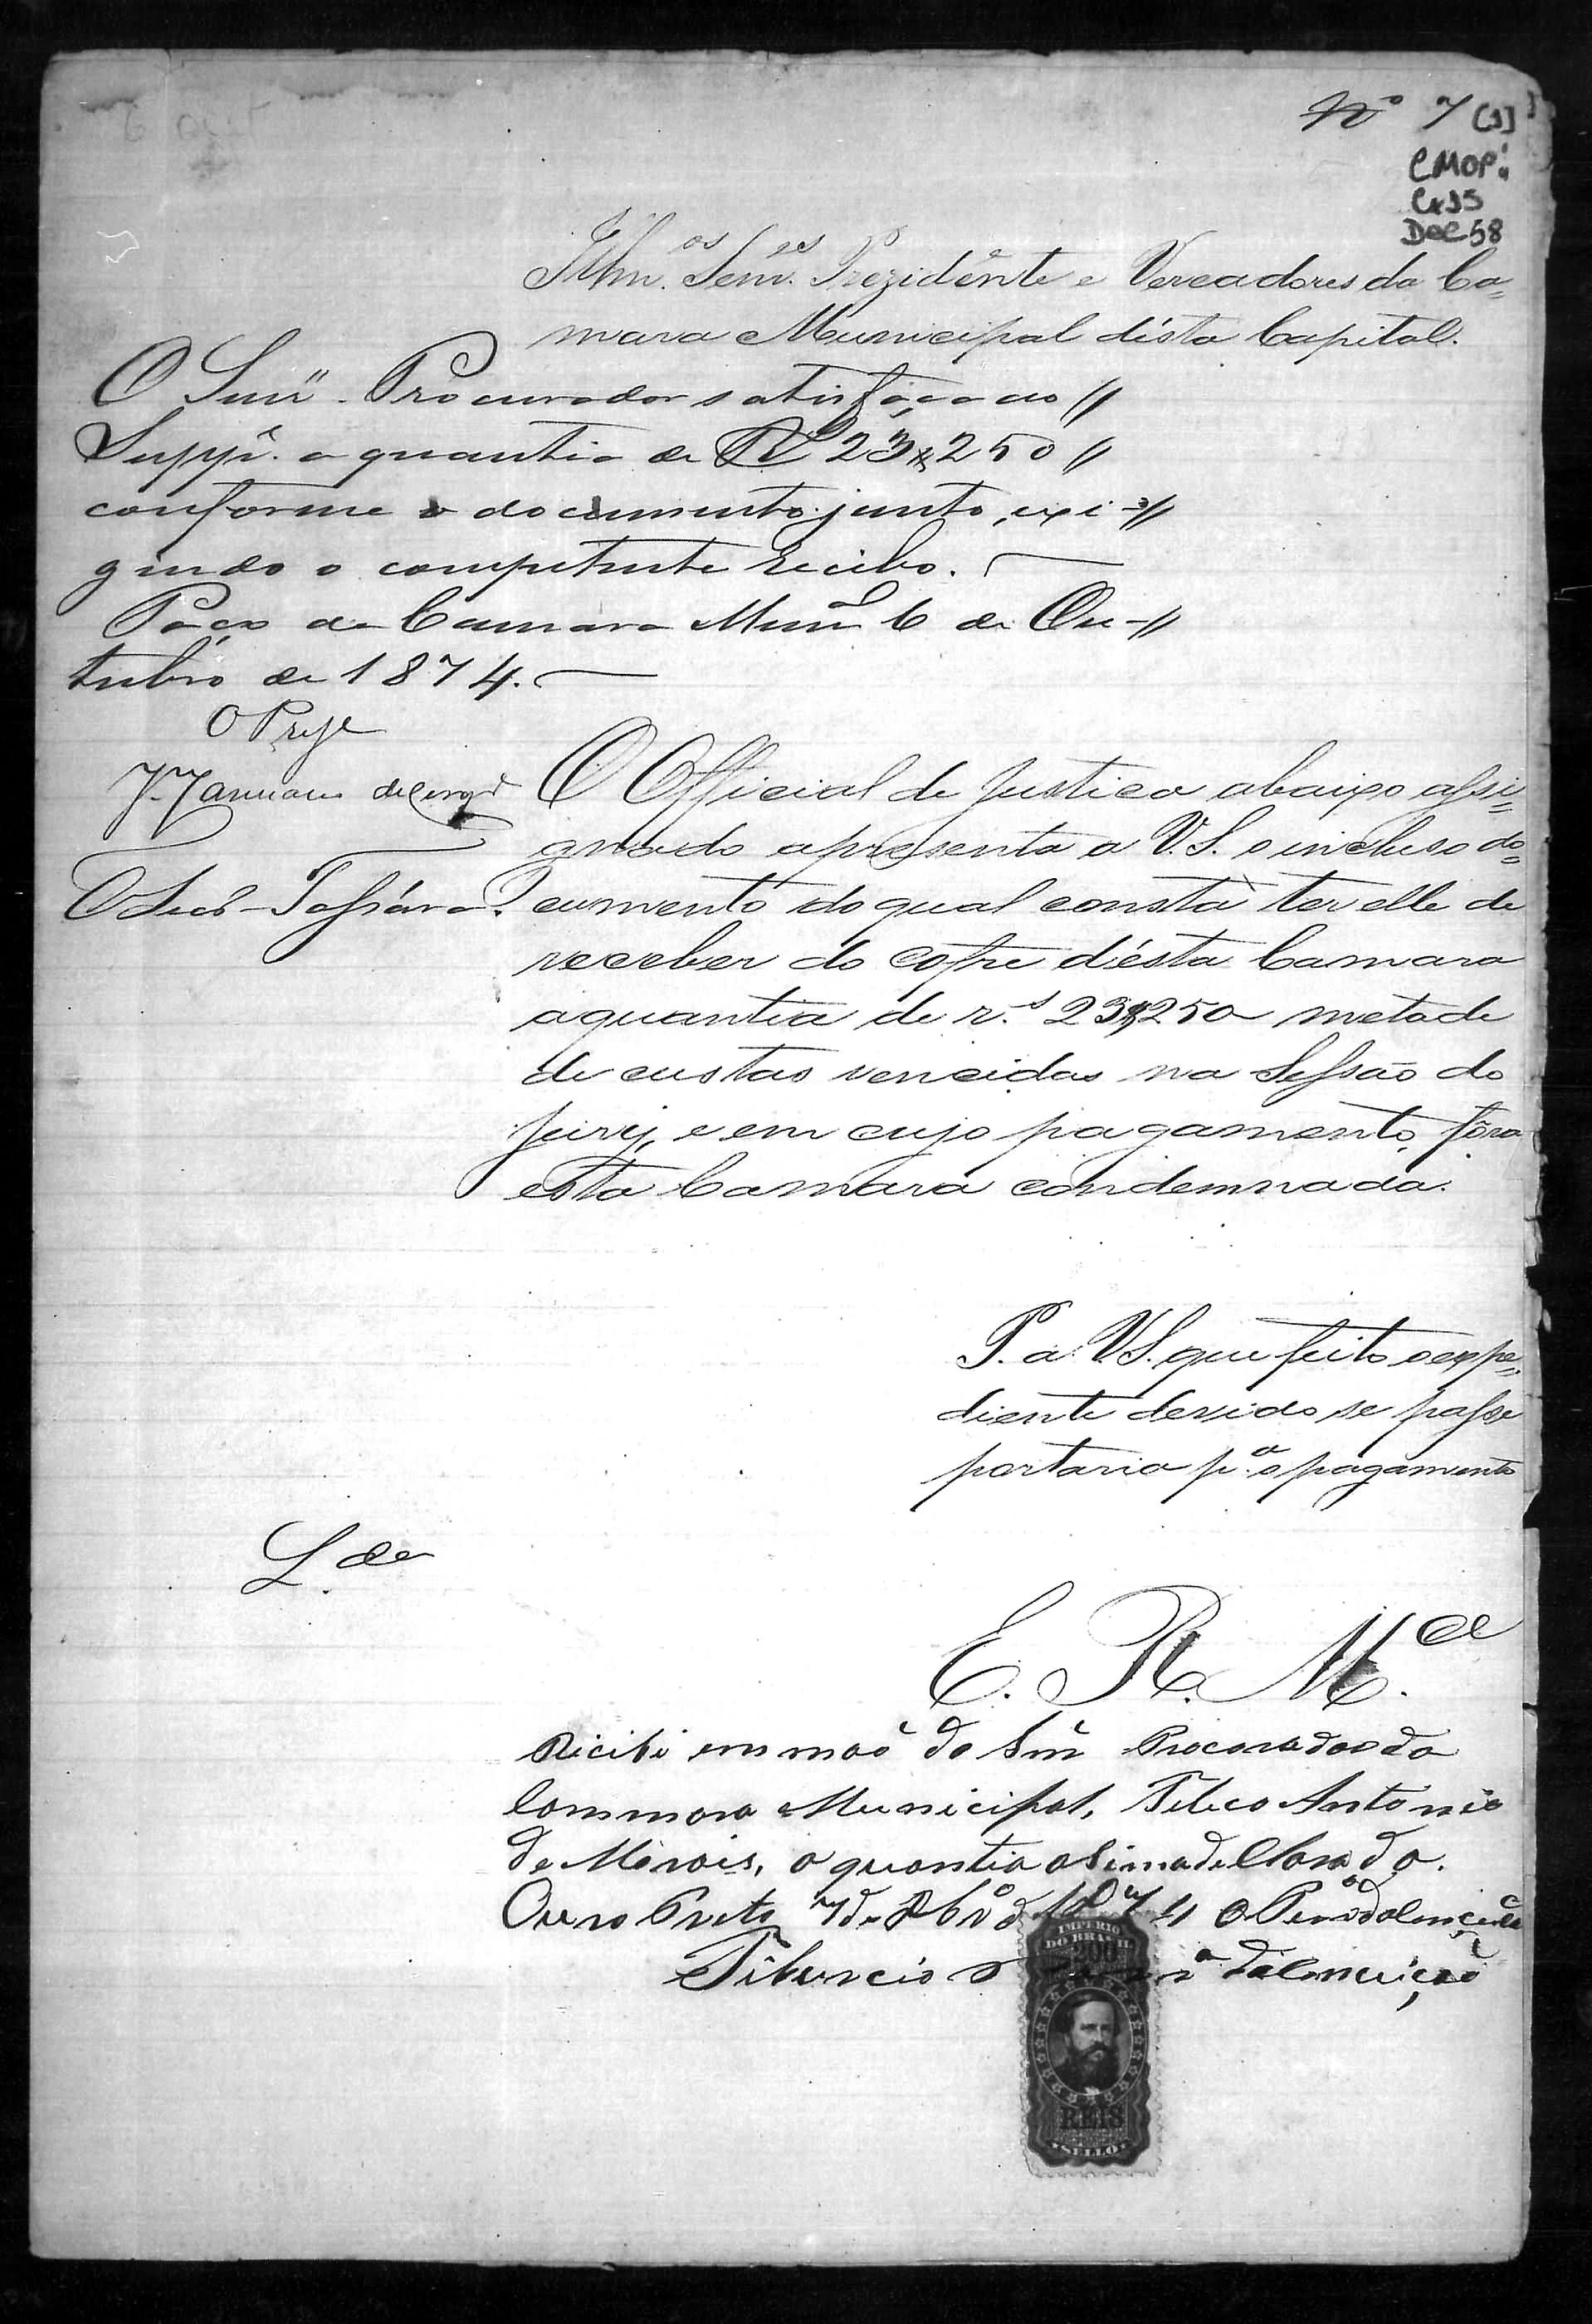 Nº 7 [1]
CMOP:
Cx15
Doc 58
Illm.os Senr.es Prezidente e Vereadores da Ca=
mara Municipal désta Capital.
O Snnr. Procurador satisfaça ao //
Suppe. a quantia de Rs 23$250 //
conforme o documento junto, exi- //
gindo o competente recibo.
Paço da Camara Munal 6 de Ou- //
tubro de 1874.
O Preze
J. Januario de Cerqra
O Secro Tassára.
O Official de Justica abaixo assi=
gnado apresenta a V.S. o incluso do=
cumento do qual consta ter elle de
receber do cofre d'ésta Camara
a quantia de r.s 23$250 metade
de custas vencidas na Sessão do
Jury, e em cujo pagamento, fôra
esta Camara condemnada.
P. a V.S. que feito o expe=
diente devido se passe
portaria p.a o pagamento
L.da
E. R. M.ce
Recibi em maõ do Snr Procurador da
Cammara Municipal,
de Morais, a quantia asima decllarada.
Ouro Preto 7 de 8bro d 1874
Tiburcio
IMPERIO
DO BRASIL
200
REIS
SELLO